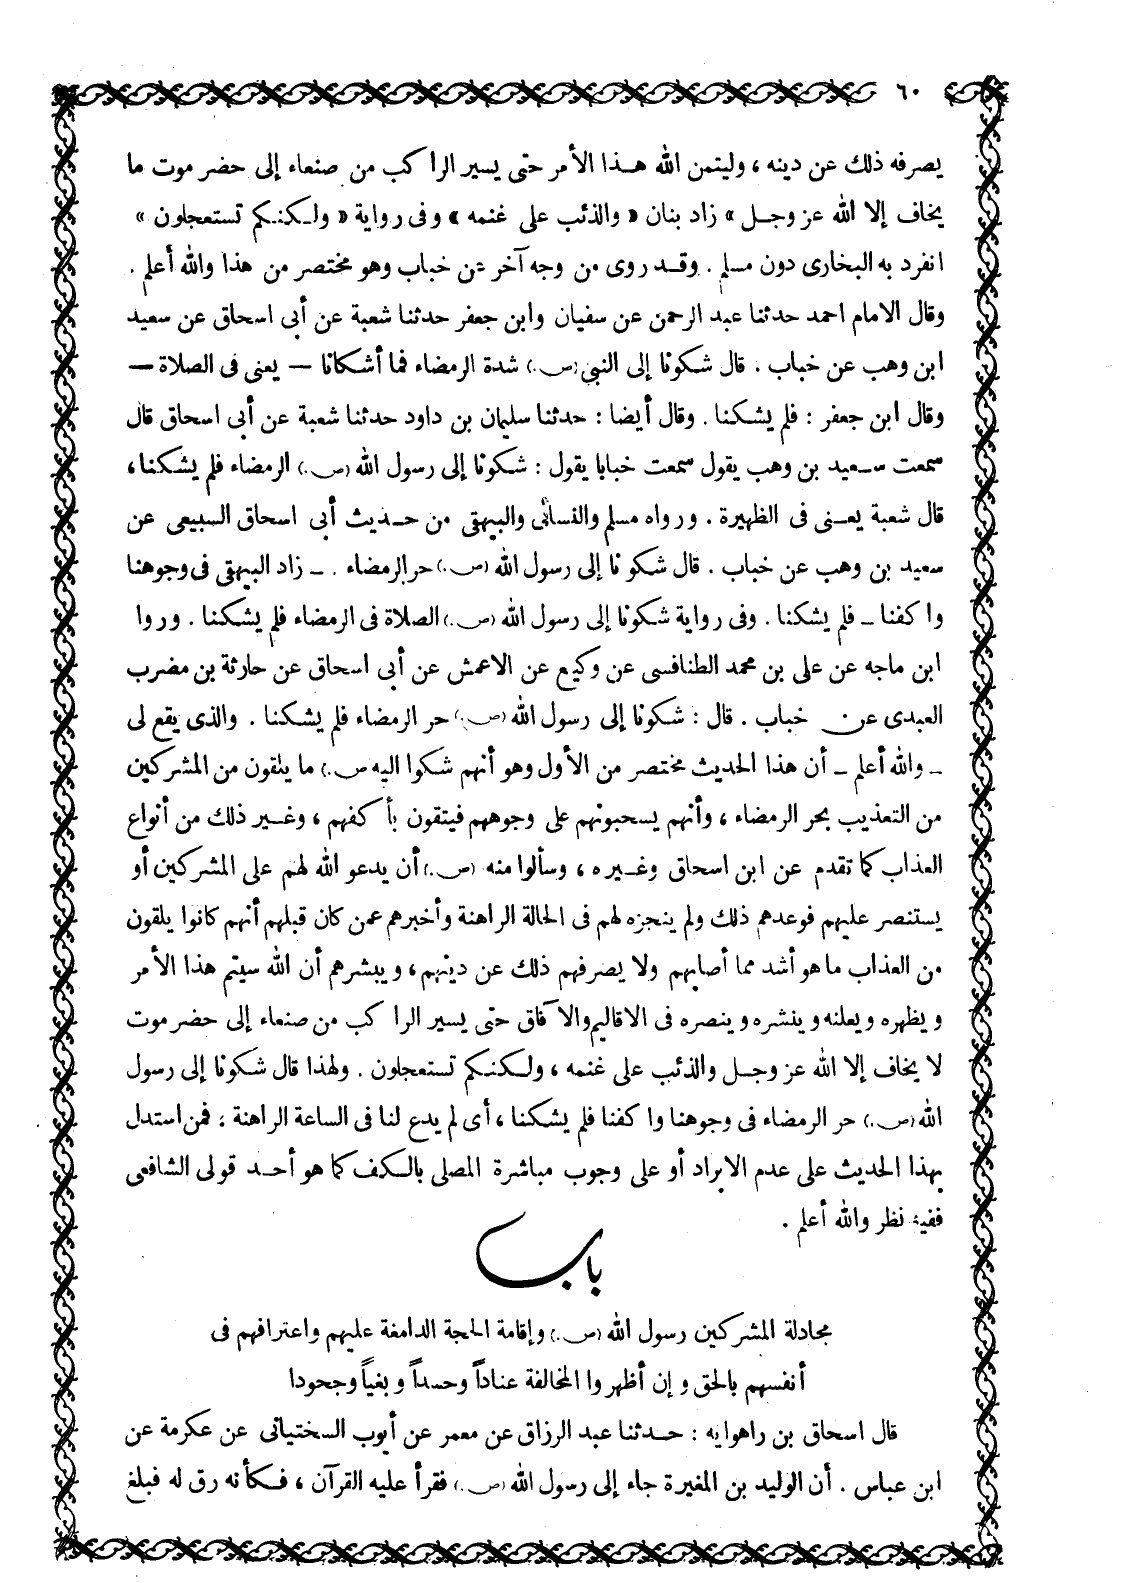 ٦٠
يصرفه ذلك عن دينه ، وليتمن الله هذا الأمر حتى يسير الراكب من صنعاء إلى حضرموت ما
يخاف إلا الله عز وجل » زاد بنان « والذئب على غنمه » وفى رواية « ولكنكم تستعجلون »
انفرد به البخارى دون مسلم . وقد روى من وجه آخر عن خباب وهو مختصر من هذا والله أعلم .
وقال الامام احمد حدثنا عبد الرحمن عن سفيان وابن جعفر حدثنا شعبة عن أبى اسحاق عن سعيد
ابن وهب عن خباب . قال شكونا إلى النبى (ص.) شدة الرمضاء فما أشكانا — يعنى فى الصلاة —
وقال ابن جعفر : فلم يشكنا . وقال أيضا : حدثنا سليمان بن داود حدثنا شعبة عن أبى اسحاق قال
سمعت سعيد بن وهب يقول سمعت خبابا يقول : شكونا إلى رسول الله (ص.) الرمضاء فلم يشكنا ،
قال شعبة يعنى فى الظهيرة . ورواه مسلم والنسائى والبيهقى من حديث أبى اسحاق السبيعى عن
سعيد بن وهب عن خباب . قال شكونا إلى رسول الله (ص.) حر الرمضاء . ـ زاد البيهقى فى وجوهنا
واكفنا ـ فلم يشكنا . وفى رواية شكونا إلى رسول الله (ص.) الصلاة فى الرمضاء فلم يشكنا . وروا
ابن ماجه عن على بن محمد الطنافسى عن وكيع عن الاعمش عن أبى اسحاق عن حارثة بن مضرب
العبدى عن خباب . قال : شكونا إلى رسول الله (ص.) حر الرمضاء فلم يشكنا . والذى يقع لى
ـ والله أعلم ـ أن هذا الحديث مختصر من الأول وهو أنهم شكوا اليه ص.) ما يلقون من المشركين
من التعذيب بحر الرمضاء ، وأنهم يسحبونهم على وجوههم فيتقون بأكفهم ، وغير ذلك من أنواع
العذاب كما تقدم عن ابن اسحاق وغيره ، وسألوا منه (ص.) أن يدعو الله لهم على المشركين أو
يستنصر عليهم فوعدهم ذلك ولم ينجزه لهم فى الحالة الراهنة وأخبرهم عمن كان قبلهم أنهم كانوا يلقون
من العذاب ما هو أشد مما أصابهم ولا يصرفهم ذلك عن دينهم ، ويبشرهم أن الله سيتم هذا الأمر
ويظهره ويعلنه وينشره وينصره فى الاقاليم والآفاق حتى يسير الراكب من صنعاء إلى حضرموت
لا يخاف إلا الله عز وجل والذئب على غنمه ، ولكنكم تستعجلون . ولهذا قال شكونا إلى رسول
الله (ص.) حر الرمضاء فى وجوهنا واكفنا فلم يشكنا ، أى لم يدع لنا فى الساعة الراهنة ؛ فمن استدل
بهذا الحديث على عدم الابراد أو على وجوب مباشرة المصلى بالكف كما هو أحد قولى الشافعى
ففيه نظر والله أعلم .
باب
مجادلة المشركين رسول الله (ص.) وإقامة الحجة الدامغة عليهم واعترافهم فى
أنفسهم بالحق وإن أظهروا المخالفة عناداً وحسداً وبغياً وجحودا
قال اسحاق بن راهوايه : حدثنا عبد الرزاق عن معمر عن أيوب السختيانى عن عكرمة عن
ابن عباس . أن الوليد بن المغيرة جاء إلى رسول الله (ص.) فقرأ عليه القرآن ، فكأنه رق له فبلغ